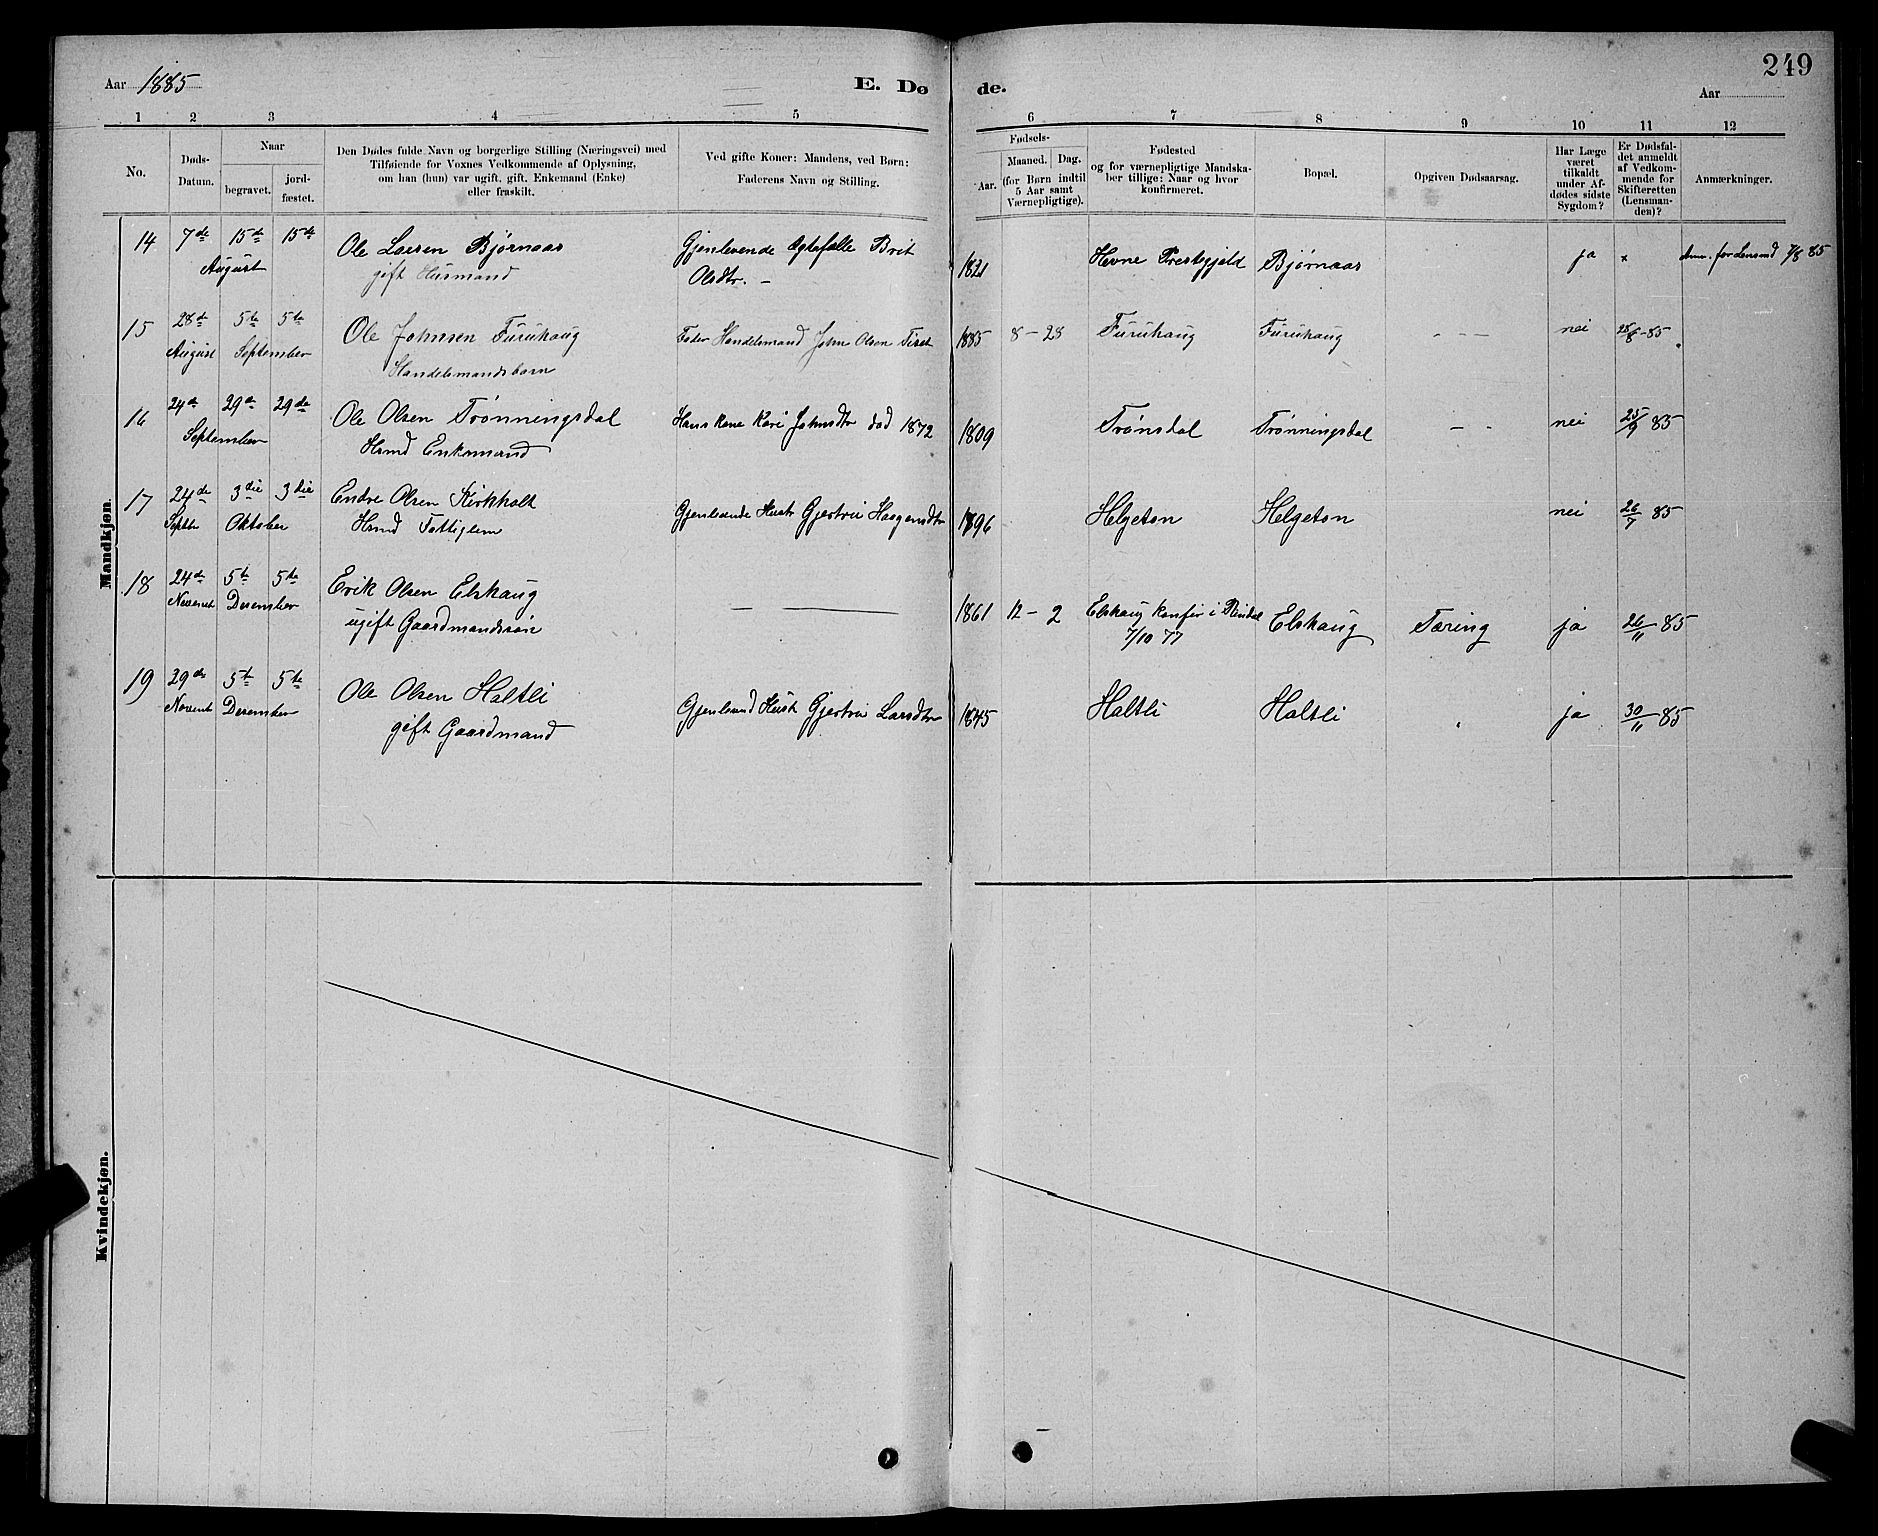 249
Aar 1885
E. Dø de.
Aar
1 2 3 4 5 6 7 8 9 10 11 12
No.
Døds-
Datum.
Naar
begravet.
jord-
fæstet.
Den Dødes fulde Navn og borgerlige Stilling (Næringsvei) med
Tilføiende for Voxnes Vedkommende af Oplysning,
om han (hun) var ugift, gift, Enkemand (Enke)
eller fraskilt.
Ved gifte Koner: Mandens, ved Børn:
Faderens Navn og Stilling.
Fødsels-
Aar.
Maaned. Dag.
(for Børn indtil
5 Aar samt
Værnepligtige).
Fødested
og for værnepligtige Mandska-
ber tillige: Naar og hvor
konfirmeret.
Bopæl.
Opgiven Dødsaarsag.
Har Læge
været
tilkaldt
under Af-
dødes sidste
Sygdom?
Er Dødsfal-
det anmeldt
af Vedkom-
mende for
Skifteretten
(Lensman-
den)?
Anmærkninger.
Mandkjøn.
14 7de 15de 15de Ole Larsen Bjørnaas Gjenlevende Ægtefælle Brit 1821 Hevne Prestegjeld Bjørnaas ja x Anm. for Lensmd 7/8 85
August gift Husmand Olsdtr. -
15 28de 5te 5te Ole Johnsen Furuhaug Fader Handelsmand John Olsen 1885 8 - 28 Furuhaug Furuhaug - - - nei 28/8 - 85
August September Handelsmandsbarn
16 24de 29de 29de Ole Olsen Trønningsdal Hans Kone Kari Johnsdtr død 1872 1809 Trønsdal Trønningsdal - - nei 25/9 85
September Hsmd Enkemand
17 24de 3die 3die Endre Olsen Kirkholt Gjenlevende Hustr Gjertru Haagensdtr 1896 Helgeton Helgeton nei 26/7 85
Septbr Oktober Hsmd Fattiglem
18 24de 5te 5te Erik Olsen Elshaug — — 1861 12 - 2 Elshaug konfir i Rindal Elshaug Tæring ja 26/11 85
Novembr Desember ugift Gaardmandssøn 7/10 77
19 29de 5te 5te Ole Olsen Haltli Gjenlevnd Hustr Gjertru Larsdtr 1845 Haltli Haltli " ja 30/11 85
Novembr Desember gift Gaardmand
Kvindekjøn.